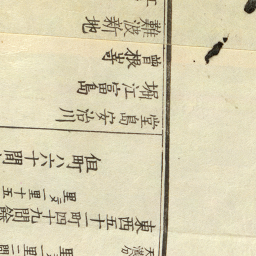 難波新地
曽根崎
堀江富島
堂島安治川
但町ハ六十間
東西五十一町四十九間餘
里ニ〆一里十五